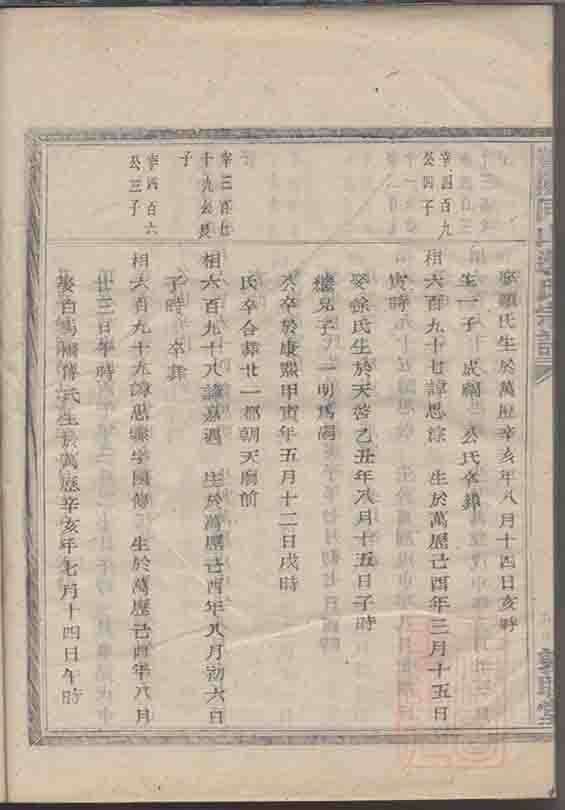 娶顧氏生於萬歷辛亥年八月十四日亥時
生一子 成 公氏卒葬
幸四百九
公四子
相六百九十七諱思 生於萬歷己酉年三月十五日
寅時
娶徐氏生於天啓乙丑年八月十五日子時
繼兄子 明爲嗣
公卒於康熙甲寅年五月十二日戌時
氏卒合葬廿一都朝天 前
幸三百七
十九公長
子
相六百九十八諱嘉遇 生於萬歷己酉年八月初六日
子時 卒葬
幸四百六
公三子
相六百九十九諱思 字國 生於萬歷己酉年八月
廿三日午時
娶白馬 傅氏生於萬歷辛亥年七月十四日午時